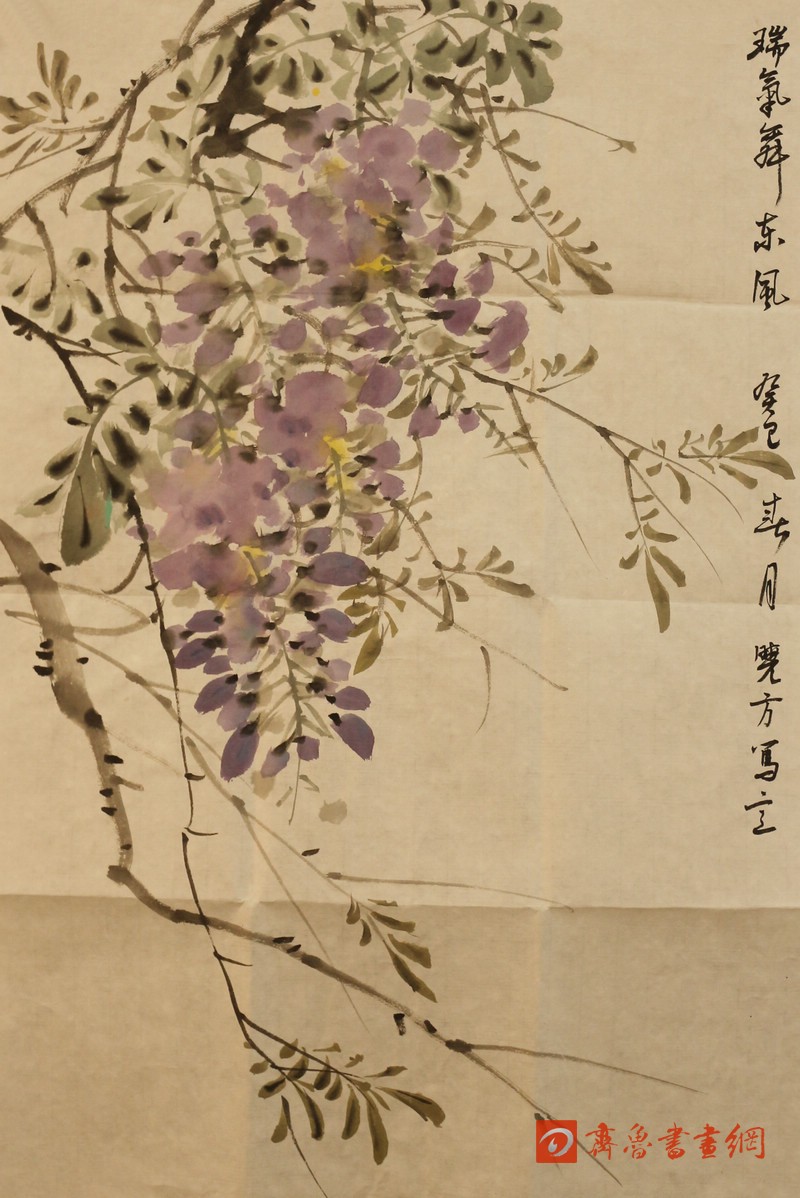 瑞氣舞东風 癸巳春月 曉方写意
齊魯書畫網